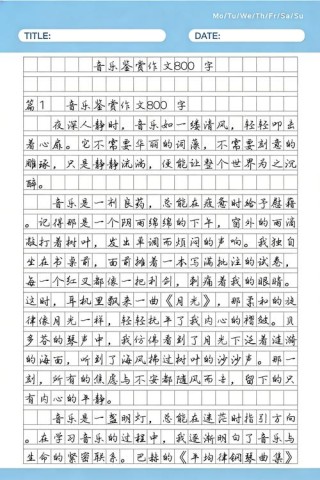 Mo/Tu/We/Th/Fr/Sa/Su
TITLE:
DATE:
音乐鉴赏作文800 字
篇1 音乐鉴赏作文800 字
夜深人静时，音乐如一缕清风，轻轻叩出
着心扉。它不需要华丽的词藻，不需要刻意的
雕琢，只是静静流淌，便能让整个世界为之沉
醉。
音乐是一剂良药，总能在疲惫时给予慰藉
。记得那是一个阴雨绵绵的下午，窗外的雨滴
敲打着树叶，发出单调而烦闷的声响。我独自
坐在书桌前，面前摊着一本写满批注的试卷，
每一个红叉都像一把利剑，刺痛着我的眼睛。
这时，耳机里飘来一曲《月光》，那柔和的旋
律像月光一样，轻轻抚平了我内心的褶皱。贝
多芬的琴声中，我仿佛看到了月光下泛着涟漪
的海面，听到了海风拂过树叶的沙沙声。那一
刻，所有的焦虑与不安都随风而去，留下的只
有内心的平静。
音乐是一盏明灯，总能在迷茫时指引方向
。在学习音乐的过程中，我逐渐明白了音乐与
生命的紧密联系。巴赫的《平均律钢琴曲集》